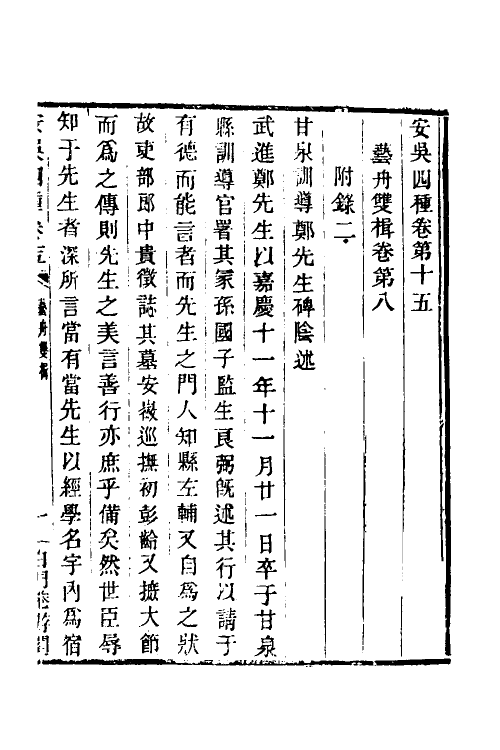 安吳四種卷第十五
藝舟雙楫卷第八
附錄二
甘泉訓導鄭先生碑陰述
武進鄭先生以嘉慶十一年十一月廿一日卒于甘泉
縣訓導官署其冢孫國子監生良弼旣述其行以請于
有德而能言者而先生之門人知縣左輔又自爲之狀
故吏部郎中貴徵誌其墓安徽巡撫初彭齡又摭大節
而爲之傳則先生之美言善行亦庶乎備矣然世臣辱
知于先生者深所言當有當先生以經學名宇內爲宿
安吳四種卷十五 藝舟雙楫 一